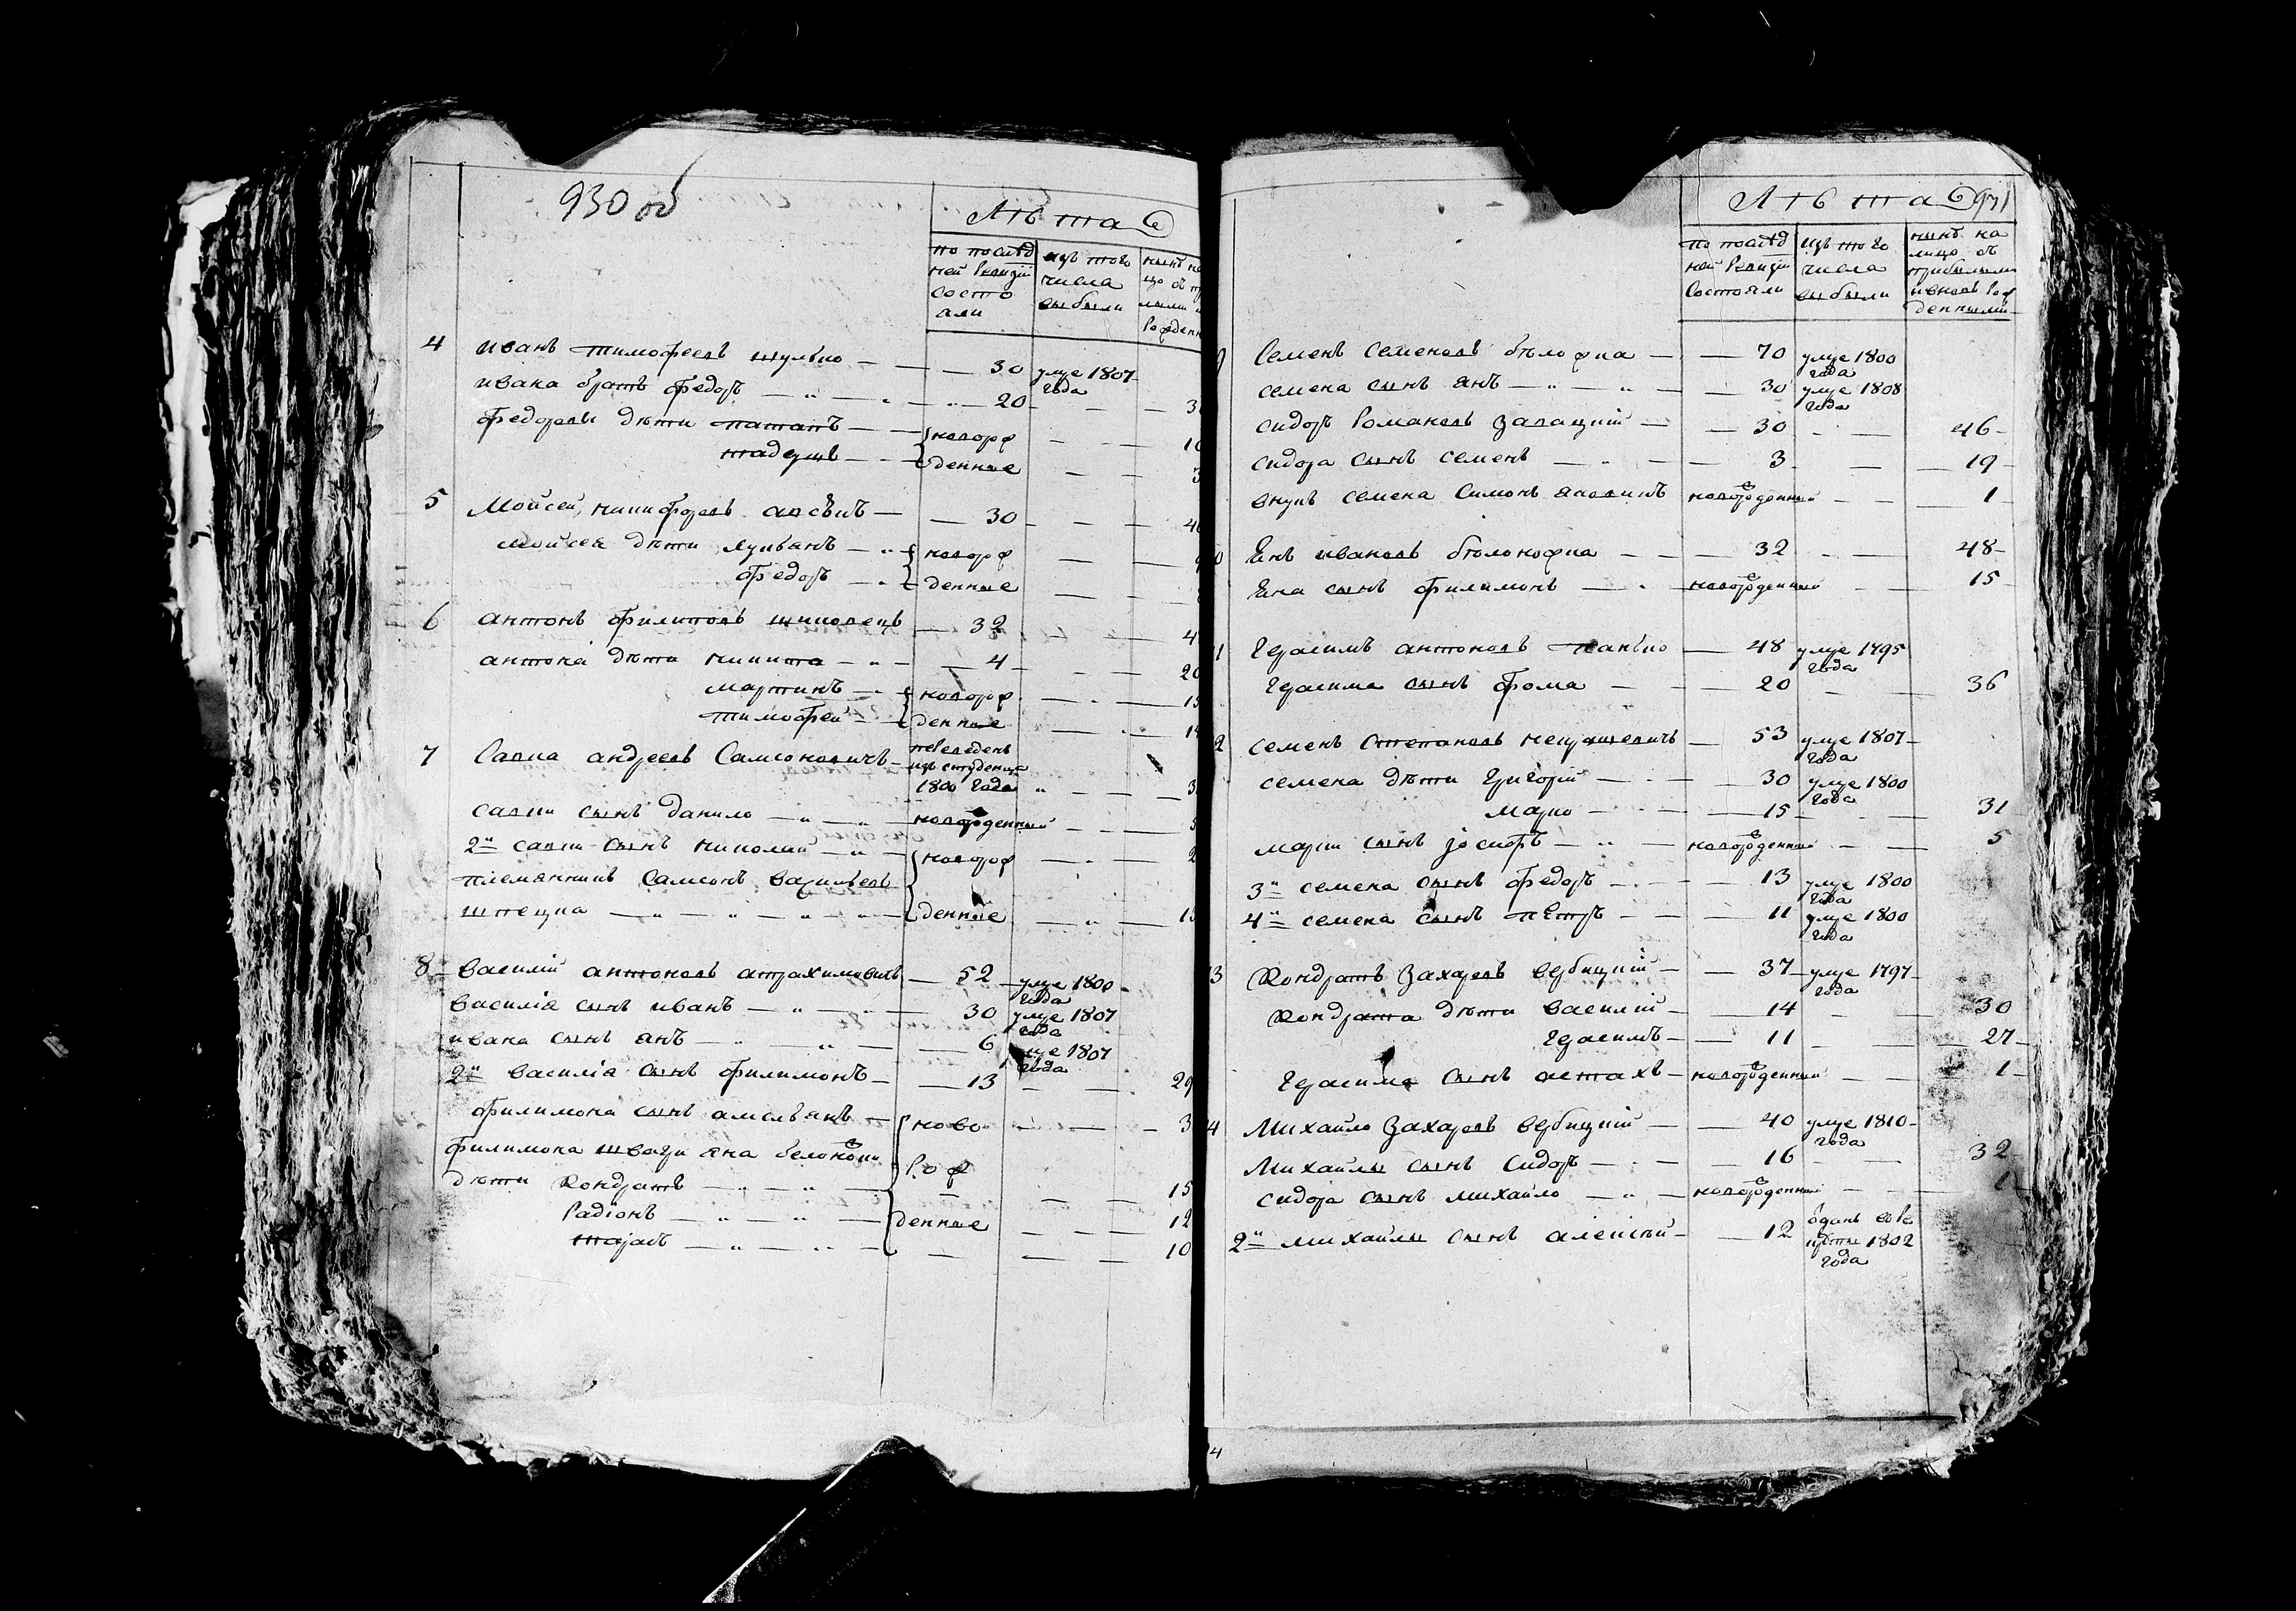 930 об
Лѣта
по послѣд
ней Ревизіи
состо
али
изъ того
числа
выбыли
нынѣ на
4 иванъ тимофеевъ шулько — 30 умре 1807
года
ивана братъ федоръ — 20 — — 3
федоровы дѣти патапъ — новорож — — 1
тадеушъ — денные — — 3
5 Мойсей никифоровъ — 30 — — 4
мойсея дѣти лукьянъ — новорож — —
федоръ — денные — —
6 антонъ филиповъ шиповецъ — 32 — — 4
антона дѣти никита — 4 — — 20
мартинъ — новорож — — 15
тимофей — денные — — 1
7 Савка андреевъ Самсоновичъ — переведенъ
изъ студенца
1800 года — — 3
савки сынъ данило — новорожденный — —
2й савки сынъ николай — новорож — — 2
племянникъ Самсонъ васильевъ
— денные — — 1
8 василій антоновъ атрахимовичъ — 52 — умре 1800
года
василія сынъ иванъ — 30 умре 1807
года
ивана сынъ янъ — 6 умре 1807
года
2й василія сынъ филимонъ — 13 — — 29
филимона сынъ амельянъ — ново — — 3
филимона швагри яна белоножки рож
дѣти Кондратъ — — — 15
Радіонъ — денные — — 12
— — — 10
Лѣта 931
по послѣд
ней Ревизіи
состояли
изъ того
числа
выбыли
нынѣ на
лицо съ
прибылыми
и вновь рож
денными
Семенъ Семеновъ — 70 умре 1800
года
семена сынъ янъ — 30 умре 1808
года
сидоръ Романовъ Залацкій — 30 — — 46
сидора сынъ семенъ — 3 — — 19
внукъ семена Симонъ — новорожденный — — 1
Янъ ивановъ бѣлоножка — 32 — — 48
Яна сынъ филимонъ — новорожденный — — 15
Герасимъ антоновъ — 48 умре 1795
года
Герасима сынъ фома — 20 — — 36
семенъ Степановъ — 53 умре 1807
года
семена дѣти Григорій — 30 умре 1800
года
марко — 15 — — 31
марки сынъ іосифъ — новорожденный — — 5
3й семена сынъ федоръ — 13 умре 1800
года
4й семена сынъ пЕтръ — 11 умре 1800
года
3 Кондратъ Захаровъ вербицкій — 37 умре 1797
года
Кондрата дѣти василій — 14 — — 30
Герасимъ — 11 — — 27
Герасима сынъ астахъ — новорожденный — — 1
4 Михайло Захаровъ вербицкій — 40 умре 1810
года
Михайлы сынъ Сидоръ — 16 — — 32
сидора сынъ михайло — новорожденный — — 1
2й михайлы сынъ алексѣй — 12 — зданъ вре
круты 1802
года
4